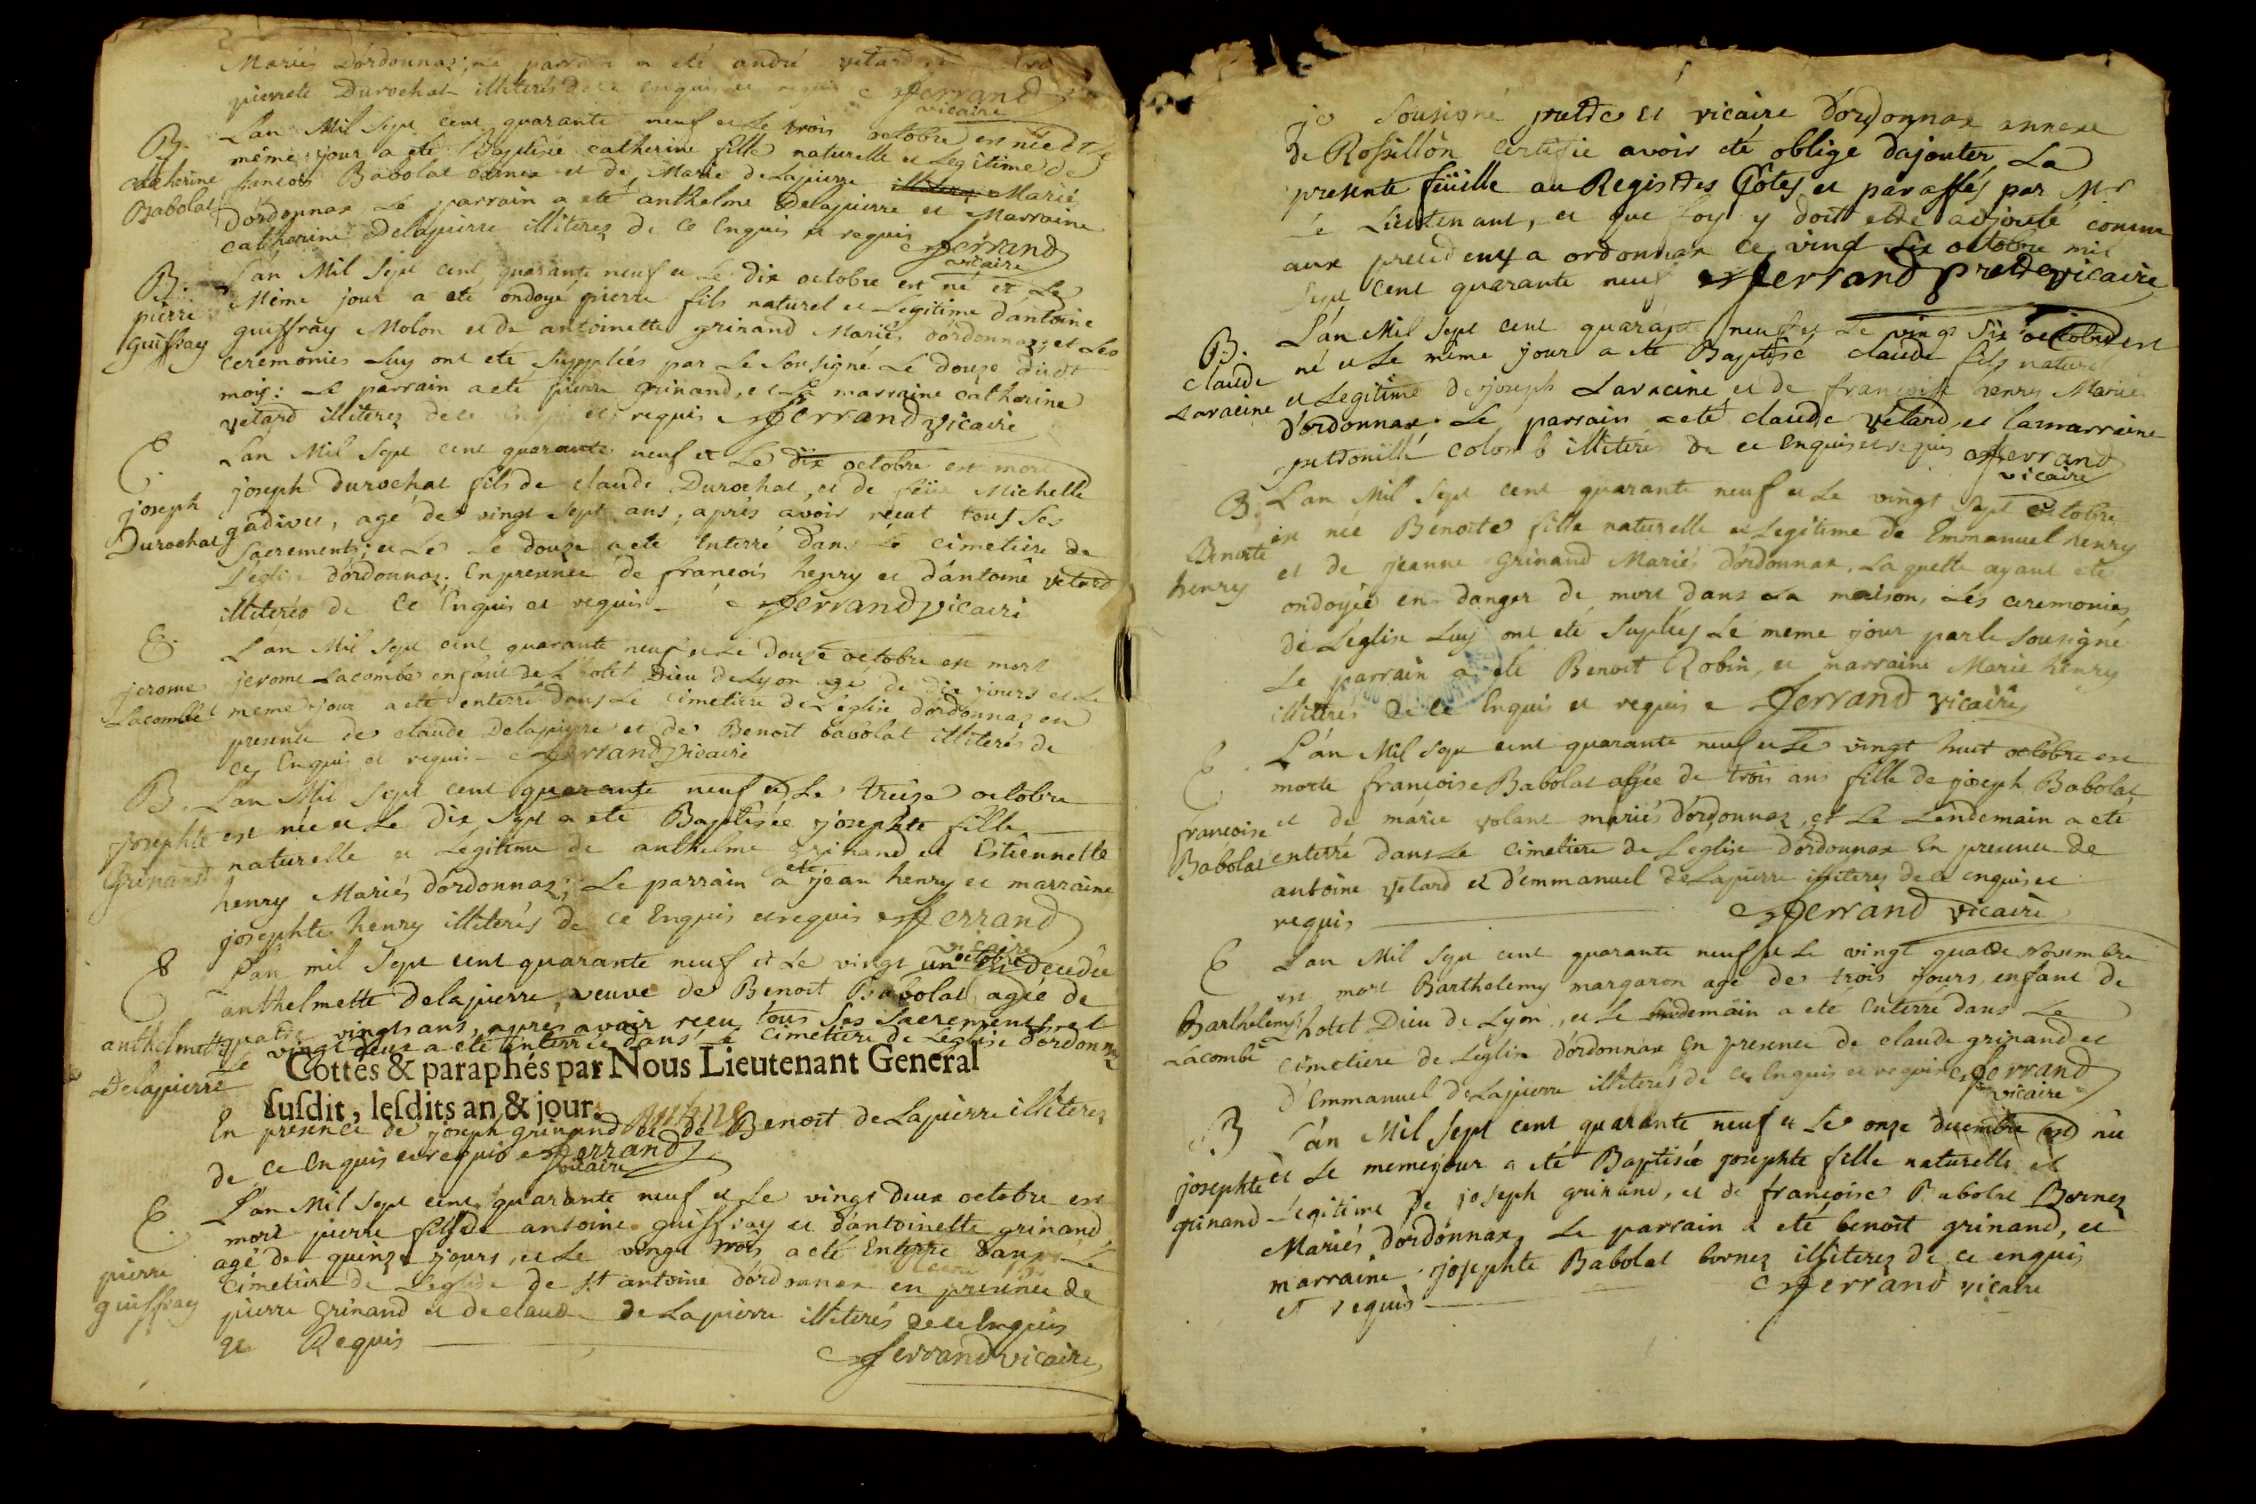 Mariés D'ordonnaz; Le parrain a eté andré vetard
pierrete Durochat illiterés de ce enquis et requis Ferrand
vicaire
B.
catherine
Babolat
L'an Mil Sept cent quarante neuf et Le trois octobre est née et Le
même jour a eté Baptisée catherine fille naturelle et Legitime de
francois Babolat bornex et de Marie delapierre Marié
d'ordonnax Le parrain a eté anthelme Delapierre et Marraine
catherine Delapierre illiterez de ce enquis et requis Ferrand
vicaire
B.
pierre
guiffray
L'an Mil Sept cent quarante neuf et Le dix octobre est né et Le
Même jour a eté ondoyé pierre fils naturel et Legitime d'antoine
guiffray Molon et de antoinette grinand Mariés d'ordonnaz, et Les
ceremonies Luy ont eté Suppliées par Le Sousigné Le douze dudt
mois: Le parrain a eté pierre grinand, et La marraine catherine
vetard illiterez de ce enquis et requis Ferrand vicaire
E
joseph
Durochat
L'an Mil Sept cent quarante neuf et Le dix octobre est mort
joseph durochat fils de claude Durochat, et de feüe Michelle
gadivet, agé de vingt Sept ans, aprés avoir recut tous Ses
Sacrements; et Le Le douze a eté Enterré dans Le cimetiere de
L'eglise d'ordonnaz; En presence de francois henry et d'antoine vetard
illiterés de ce Enquis et requis Ferrand vicaire
E.
jerome
Lacombe
L'an Mil Sept cent quarante neuf et Le douze octobre est mort
jerome Lacombe enfant de L'hotel Dieu de Lyon agé de dix jours et Le
meme jour a eté enterré dans Le cimetiere de L'eglise d'ordonnaz en
presence de claude Delapierre et de Benoit babolat illiterés de
ce Enquis et requis Ferrand vicaire
B.
josephte
Grinand
L'an Mil Sept cent quarante neuf et Le treize octobre
est née et Le dix Sept a eté Baptisée josephte fille
naturelle et Légitime de anthelme grinand et Estiennette
henry Mariés d'ordonnaz; Le parrain a eté jean henry et marraine
josephte henry illiterés de ce Enquis et requis Ferrand
vicaire
E
anthelmette
Delapierre
L'an mil Sept cent quarante neuf et Le vingt un octobre est decedée
anthelmette Delapierre, veuve de Benoit Babolat agée de
quatre vingts ans, aprés avoir receu tous Ses Sacrements, et
Le vingt deux a eté Enterrée dans Le cimetiere de Leglise d'ordonnaz
Cottés & paraphés par Nous Lieutenant General
susdit, lesdits an & jour.
En presence de joseph grinand et de Benoit deLapierre illiterez
de ce Enquis et requis Ferrand
vicaire
E.
pierre
guiffray
L'an Mil Sept cent quarante neuf et Le vingt deux octobre est
mort pierre fils de antoine guiffray et d'antoinette grinand
agé de quinze jours, et Le vingt trois a eté Enterré dans Le
cimetiere de Leglise de st antoine d'ordonnax en presence de
pierre Grinand et de claude de Lapierre illiterés de ce Enquis
et Requis
Ferrand vicaire
je Sousigné pretre et vicaire d'ordonnax annexe
de Rossillon certifie avoir eté obligé d'ajouter La
presente feüille au Registres Côtes et paraffés par Mr
Le Lieutenant, et que foy y doit etre adjouté comme
aux precedens a ordonnax ce vingt Six octobre mil
Sept cent quarante neuf Ferrand pretre vicaire
B.
claude
Laracine
L'an Mil Sept cent quarante neuf et Le vingt Six octobre est
né et Le même jour a eté Baptisé claude fils naturel
et Legitime de joseph Laracine et de francoise henry Mariés
d'ordonnax. Le parrain a eté claude vetard et la marraine
colomb illiterés de ce Enquis et requis Ferrand
vicaire
B.
Benoite
henry
L'an Mil Sept cent quarante neuf et Le vingt Sept octobre
est née Benoite fille naturelle et Legitime de Emmanuel henry
et de jeanne Grinand Mariés d'ordonnax. La quelle ayant eté
ondoyée en danger de mort dans La maison, Les ceremonies
de L'eglise Luy ont eté Supliées Le meme jour par le Sousigné
Le parrain a eté Benoit Robin, et marraine Marie henry
illiterés de ce Enquis et requis Ferrand vicaire
E.
francoise
Babolat
L'an Mil Sept cent quarante neuf et Le vingt huit octobre est
morte françoise Babolat agée de trois ans fille de joseph Babolat
et de marie volant mariés d'ordonnaz, et Le Lendemain a eté
enterré dans Le cimetiere de Leglise d'ordonnax En presence de
antoine vetard et d'emmanuel de Lapierre illiterez de ce enquis et
requis
Ferrand vicaire
E
Barthelemy
Lacombe
L'an Mil Sept cent quarante neuf et Le vingt quatre Novembre
est mort Barthelemy margaron agé de trois jours, enfant de
L'hotel Dieu de Lyon, et Le lendemain a eté Enterré dans Le
cimetiere de L'eglise d'ordonnax En presence de claude grinand et
d'Emmanuel de Lapierre illiterés de ce Enquis et requis Ferrand
vicaire
B
josephte
grinand
L'an Mil Sept cent quarante neuf et Le onze decembre est née
et Le meme jour a eté Baptisée josephte fille naturelle et
Légitime de joseph grinand, et de françoise Babolat Bornez
Mariés d'ordonnax, Le parrain a eté benoit grinand, et
marraine josephte Babolat bornez illiterez de ce enquis
et requis
Ferrand vicaire